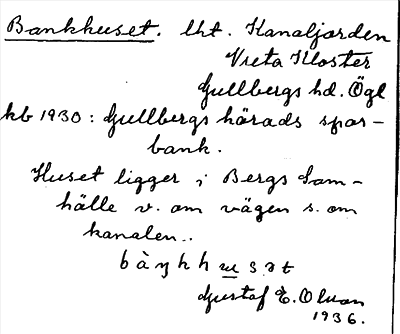 Bankhuset. lht. Kanaljorden
Vreta Kloster
Gullbergs hd. Ögl
kb 1930: Gullbergs härads spar-
bank.
Huset ligger i Bergs Sam-
hälle v. om vägen s. om
kanalen..
Gustaf E. Olsson
1936.